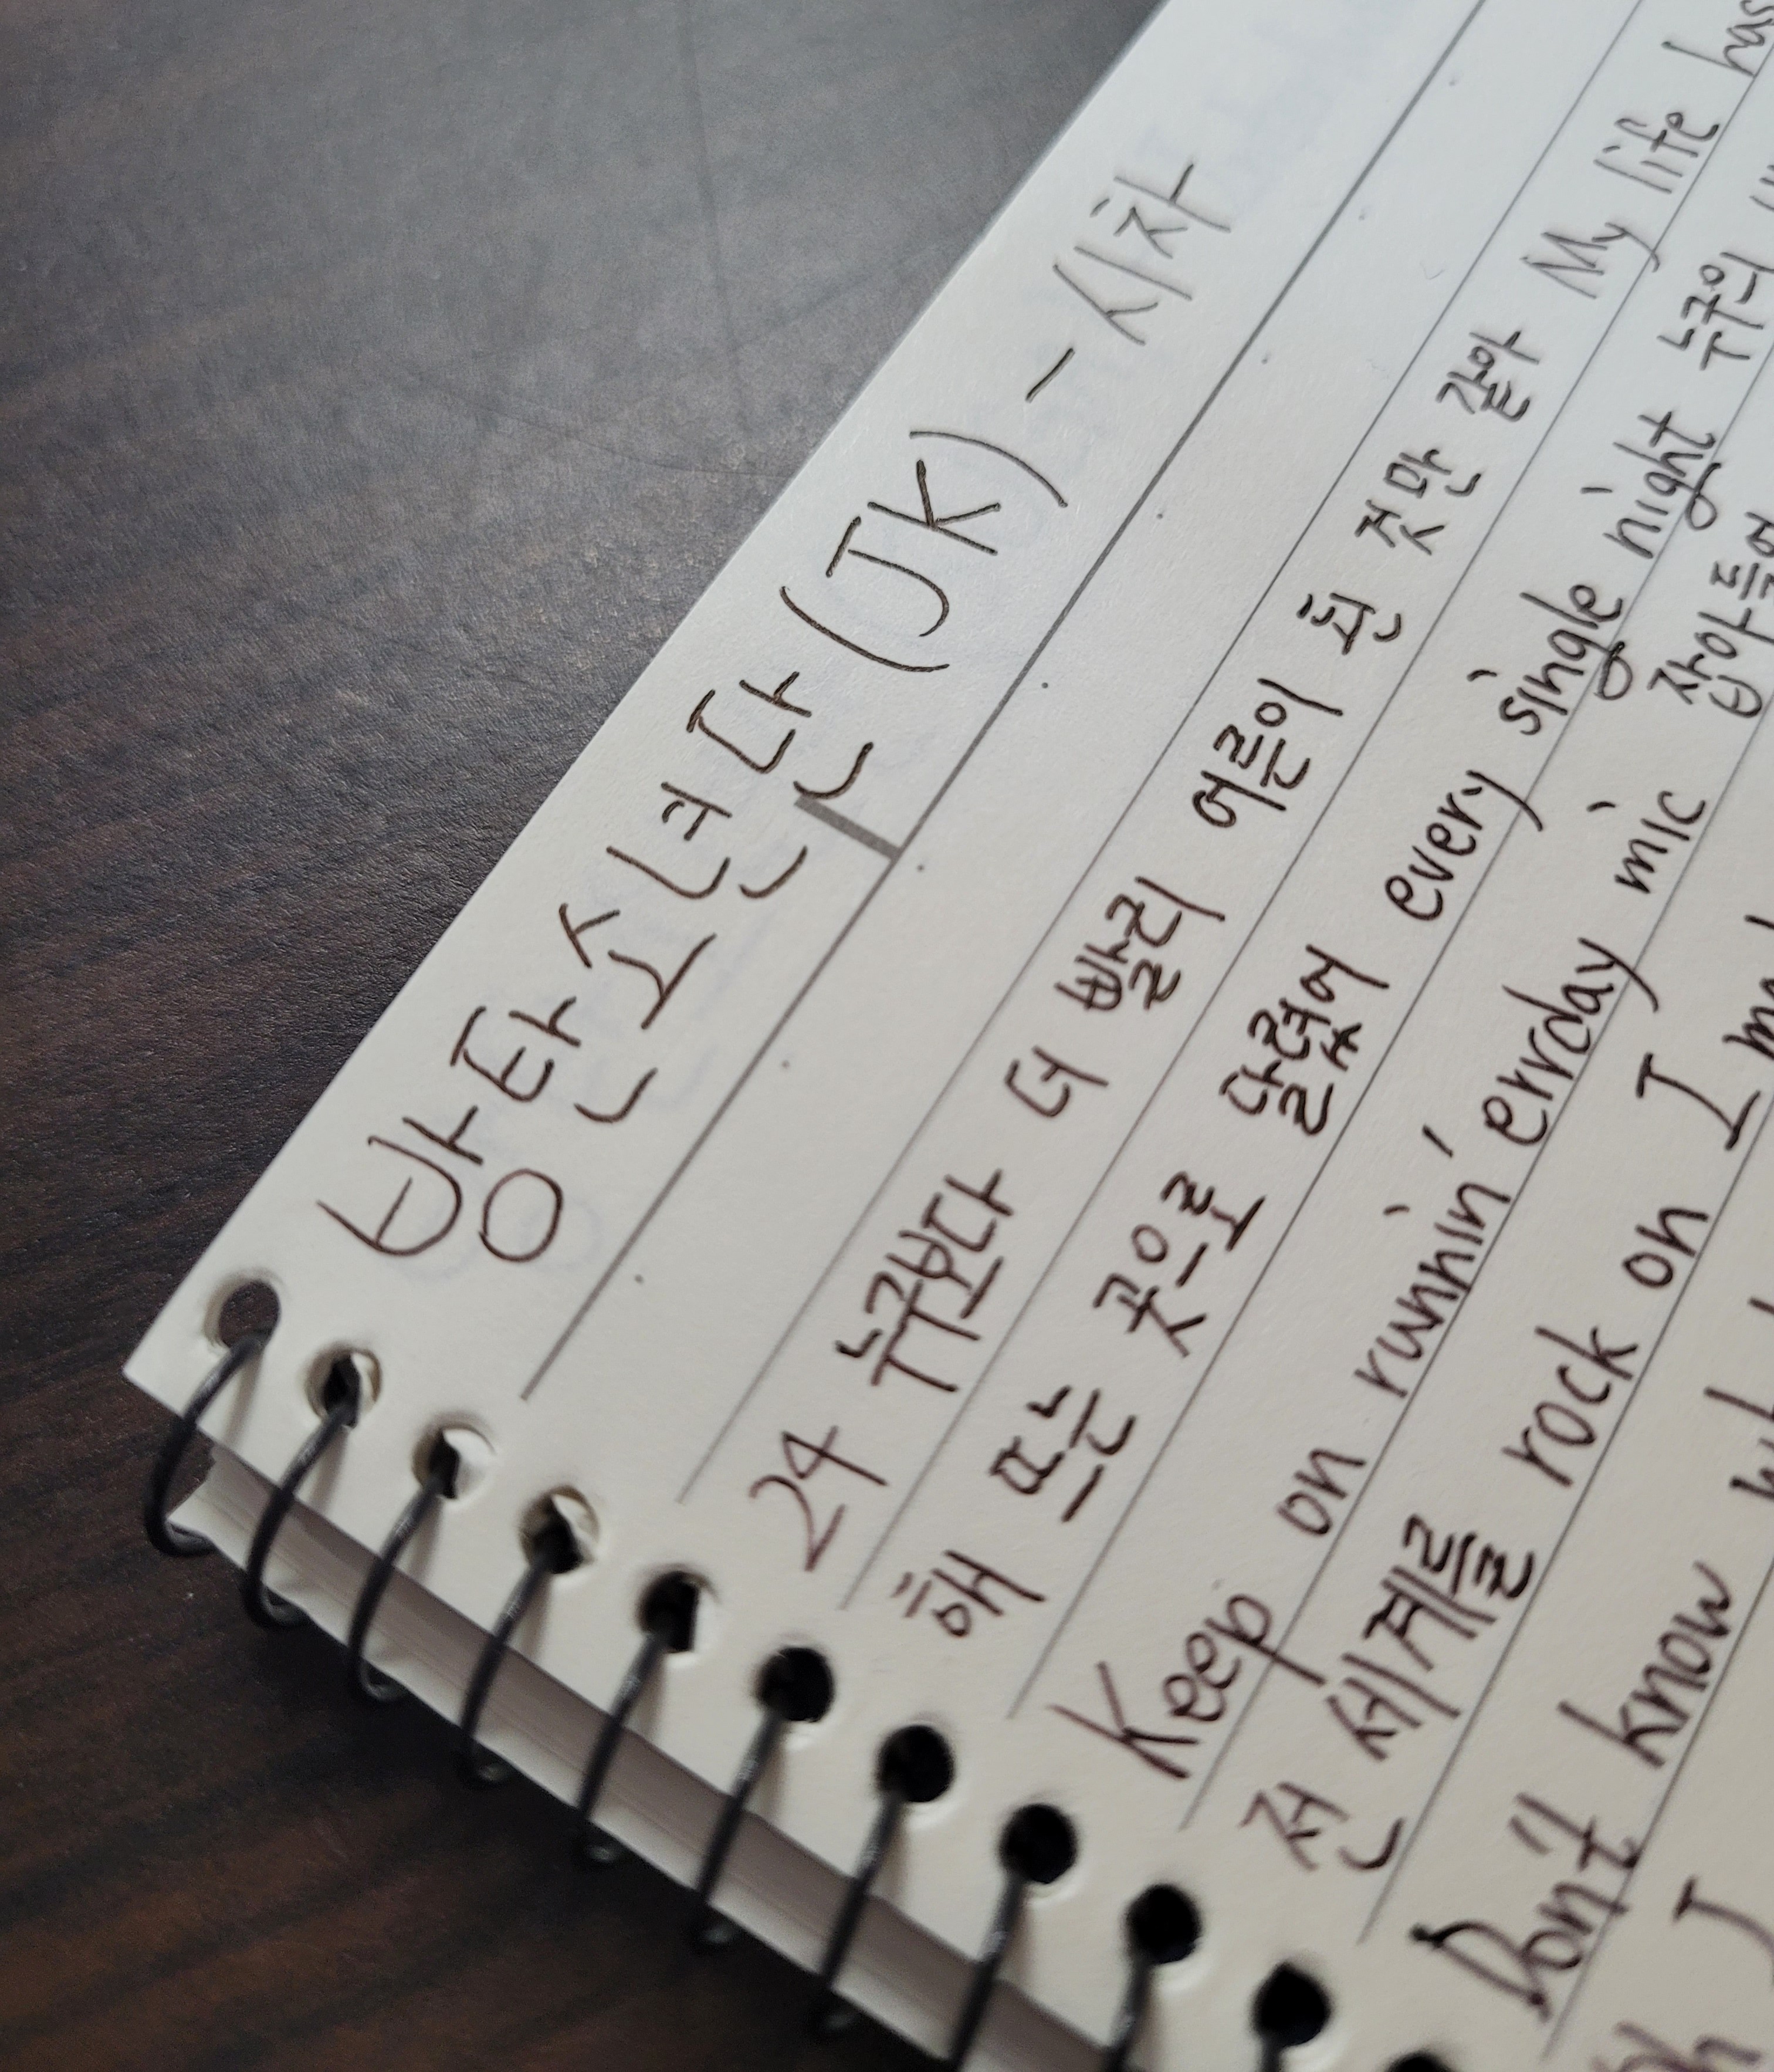 방탄소년단 (JK) - 시차
24 누구보다 더 빨리 어른이 된 것만 같아 My life has
해 뜨는 곳으로 달렸어 every single night 누구의
Keep on runnin' errday mic 잡아
전 세계를 rock on I
Don't know
I